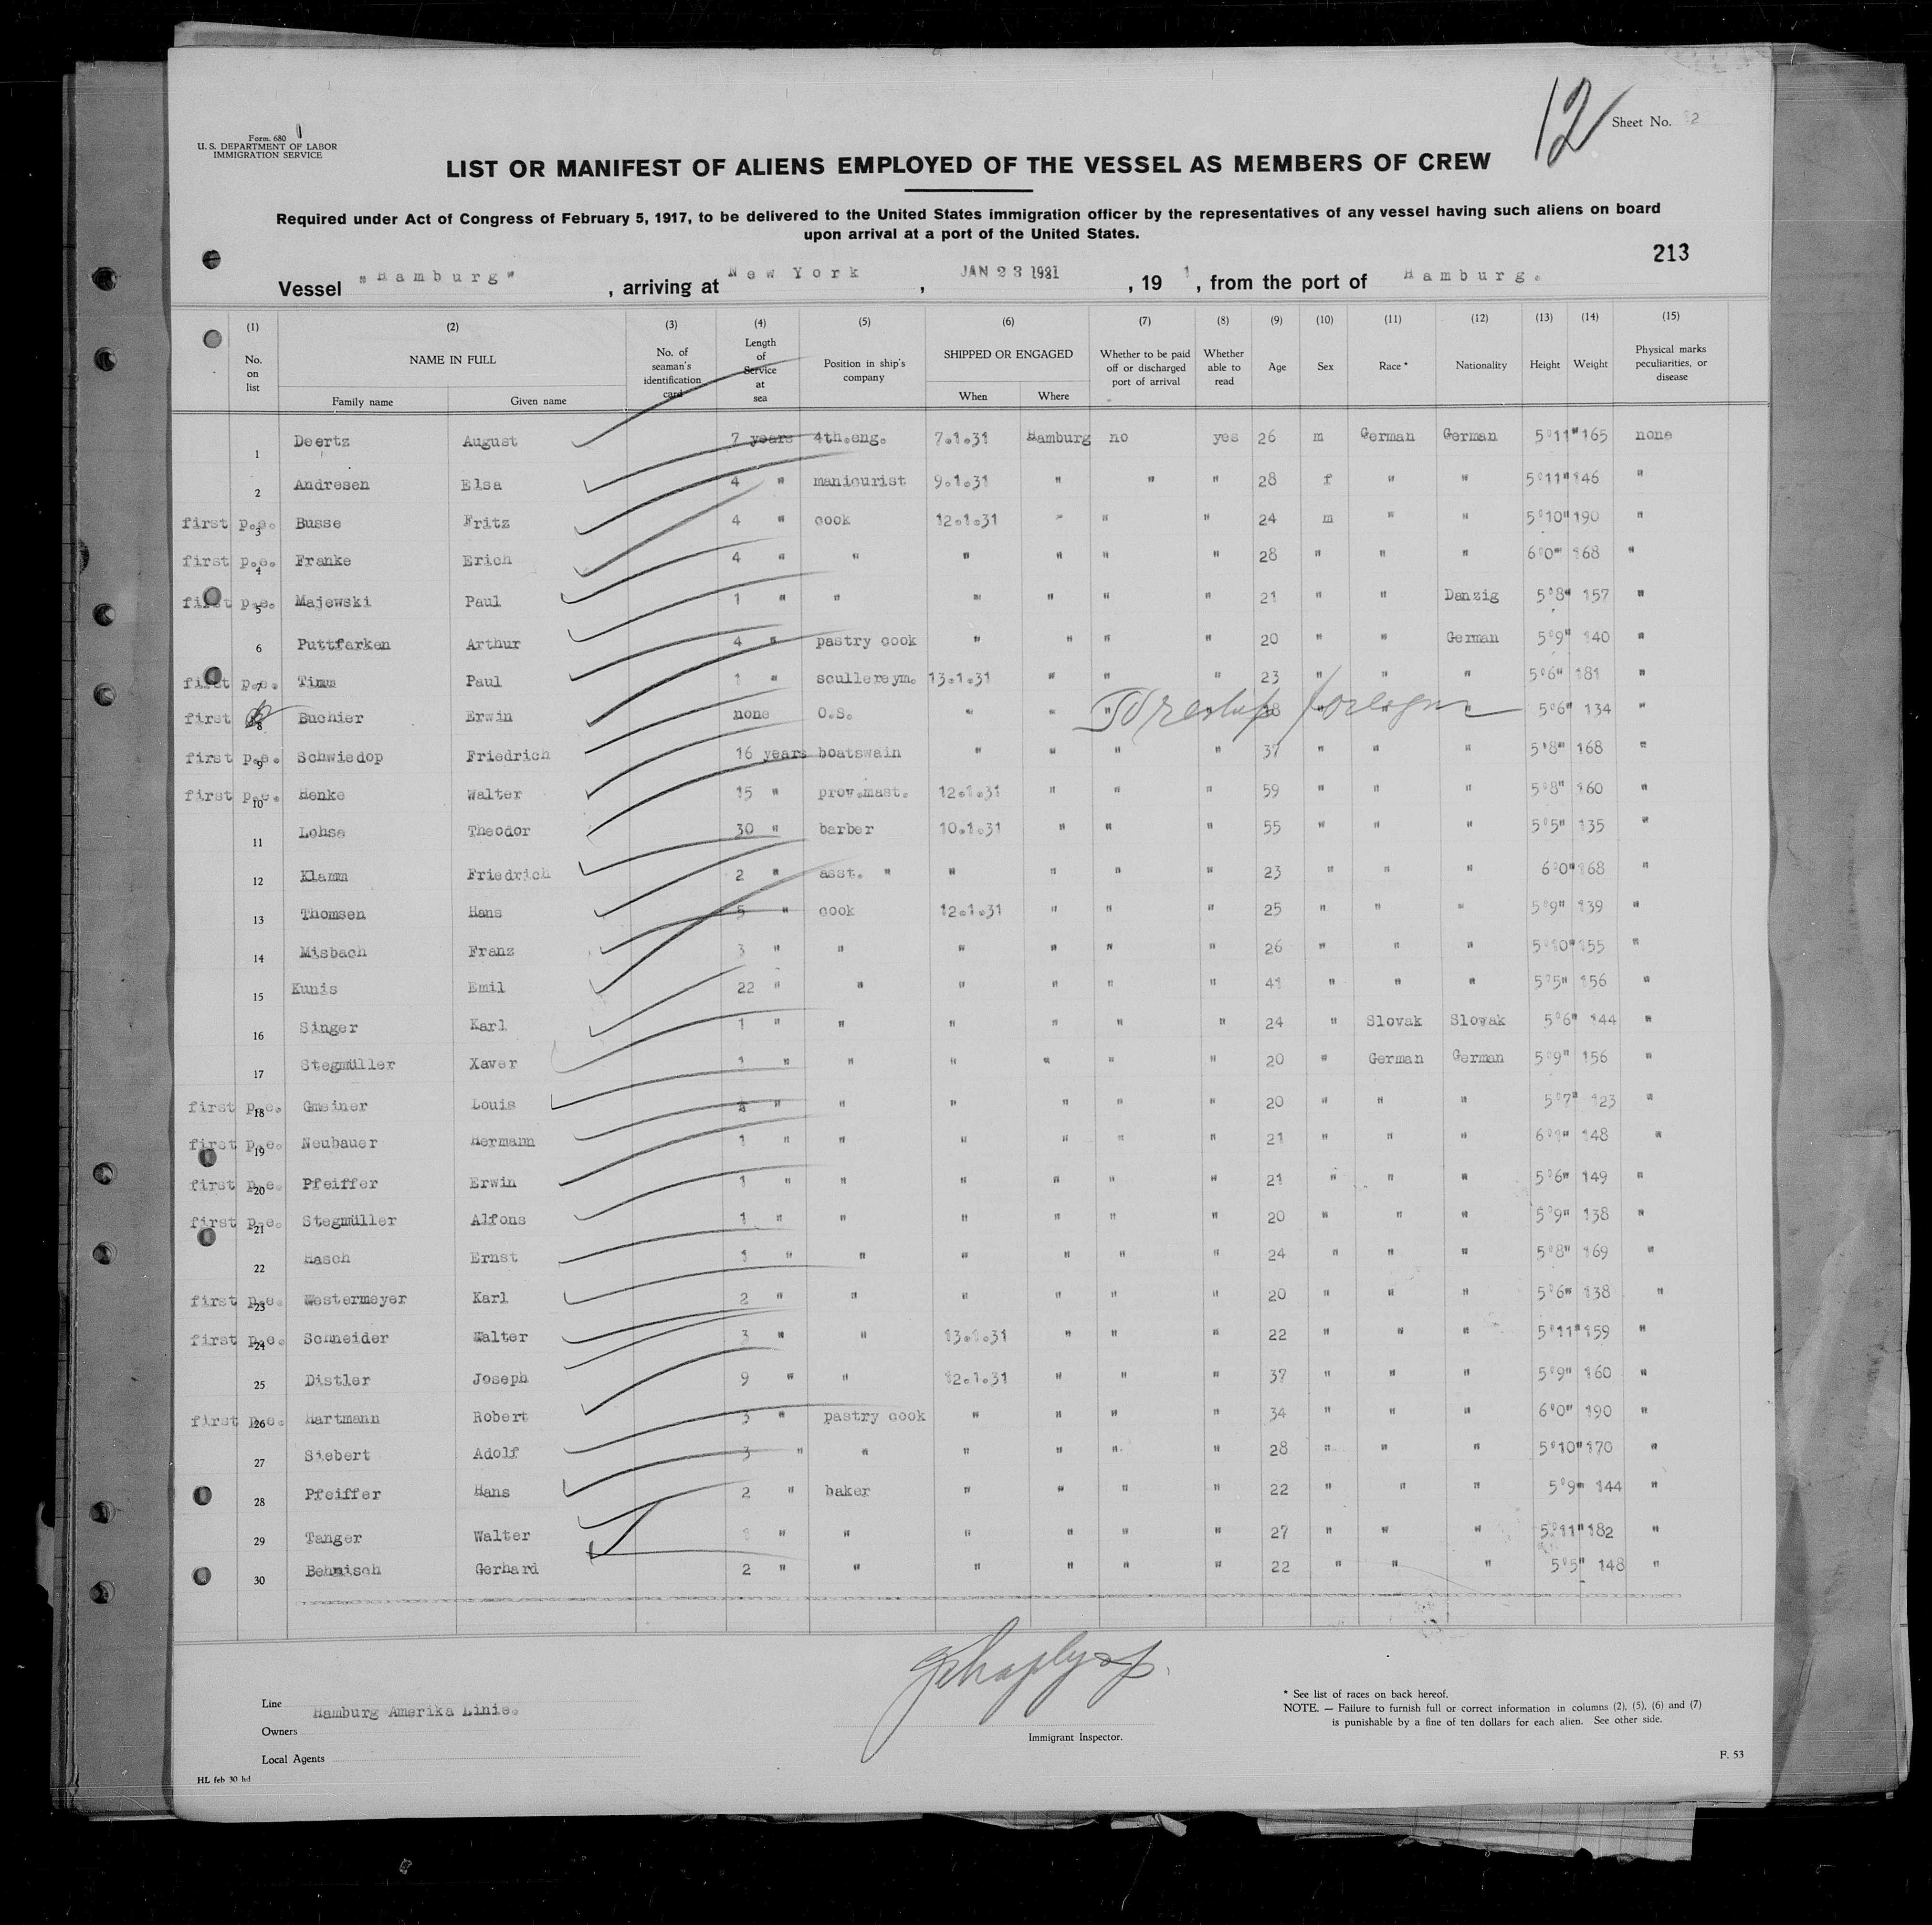 Form. 680 1
U. S. DEPARTMENT OF LABOR
IMMIGRATION SERVICE
12 Sheet No. 12
LIST OR MANIFEST OF ALIENS EMPLOYED OF THE VESSEL AS MEMBERS OF CREW
Required under Act of Congress of February 5, 1917, to be delivered to the United States immigration officer by the representatives of any vessel having such aliens on board
upon arrival at a port of the United States.
213
Vessel "Hamburg", arriving at New York, JAN 23 1931, 19 1, from the port of Hamburg.
(1) (2) (3) (4) (5) (6) (7) (8) (9) (10) (11) (12) (13) (14) (15)
No. on list NAME IN FULL Family name Given name No. of seaman's identification card Length of Service at sea Position in ship's company SHIPPED OR ENGAGED When Where Whether to be paid off or discharged port of arrival Whether able to read Age Sex Race* Nationality Height Weight Physical marks peculiarities, or disease
1 Deertz August 7 years 4th.eng. 7.1.31 Hamburg no yes 26 m German German 5°11" 165 none
2 Andresen Elsa 4 " manicurist 9.1.31 " " " 28 f " " 5°11" 146 "
first p.e. 3 Busse Fritz 4 " cook 12.1.31 " " " 24 m " " 5°10" 190 "
first p.e. 4 Franke Erich 4 " " " " " " 28 " " " 6°0" 168 "
first p.e. 5 Majewski Paul 1 " " " " " " 21 " " Danzig 5°8" 157 "
6 Puttfarken Arthur 4 " pastry cook " " " " 20 " " German 5°9" 140 "
first p.e. 7 Timm Paul 1 " sculleraym. 13.1.31 " " " 23 " " " 5°6" 181 "
first 8 Buchier Erwin none O.S. " " " 18 " " " 5°6" 134 "
first p.e. 9 Schwiedop Friedrich 16 years boatswain " " " " 37 " " " 5'8" 168 "
first p.e. 10 Henke Walter 15 " prov.mast. 12.1.31 " " " 59 " " " 5°8" 160 "
11 Lohse Theodor 30 " barber 10.1.31 " " " 55 " " " 5°5" 135 "
12 Klamm Friedrich 2 " asst. " " " " " 23 " " " 6°0" 168 "
13 Thomsen Hans 5 " cook 12.1.31 " " " 25 " " " 5°9" 139 "
14 Misbach Franz 3 " " " " " " 26 " " " 5°10" 155 "
15 Kunis Emil 22 " " " " " " 41 " " " 5°5" 156 "
16 Singer Karl 1 " " " " " " 24 " Slovak Slovak 5°6" 144 "
17 Stegmüller Xaver 1 " " " " " " 20 " German German 5°9" 156 "
first p.e. 18 Gmeiner Louis " " " " " " 20 " " " 5°7" 123 "
first p.e. 19 Neubauer Hermann 1 " " " " " " 21 " " " 6°1" 148 "
first p.e. 20 Pfeiffer Erwin 1 " " " " " " 21 " " " 5°6" 149 "
first p.e. 21 Stegmüller Alfons 1 " " " " " " 20 " " " 5°9" 138 "
22 Hasch Ernst 1 " " " " " " 24 " " " 5°8" 169 "
first p.e. 23 Westermeyer Karl 2 " " " " " " 20 " " " 5°6" 138 "
first p.e. 24 Schneider Walter 3 " " 13.1.31 " " " 22 " " " 5°11" 159 "
25 Distler Joseph 9 " " 12.1.31 " " " 37 " " " 5°9" 160 "
first p.e. 26 Hartmann Robert 3 " pastry cook " " " " 34 " " " 6°0" 190 "
27 Siebert Adolf 3 " " " " " " 28 " " " 5°10" 170 "
28 Pfeiffer Hans 2 " baker " " " " 22 " " " 5°9" 144 "
29 Tanger Walter " " " " " " 27 " " " 5°11" 182 "
30 Behnisch Gerhard 2 " " " " " " 22 " " " 5°5" 148 "
Line Hamburg Amerika Linie.
Owners
Local Agents
Immigrant Inspector.
* See list of races on back hereof.
NOTE. — Failure to furnish full or correct information in columns (2), (5), (6) and (7)
is punishable by a fine of ten dollars for each alien. See other side.
HL feb 30 hd
F. 53